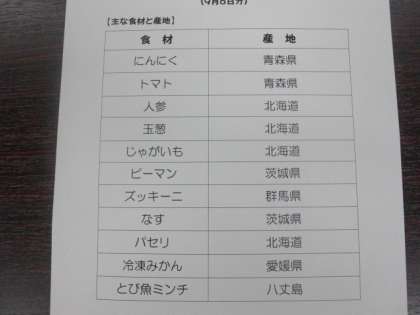 (9月6日分)
【主な食材と産地】
食 材 産 地
にんにく 青森県
トマト 青森県
人参 北海道
玉葱 北海道
じゃがいも 北海道
ピーマン 茨城県
ズッキーニ 群馬県
なす 茨城県
パセリ 北海道
冷凍みかん 愛媛県
とび魚ミンチ 八丈島